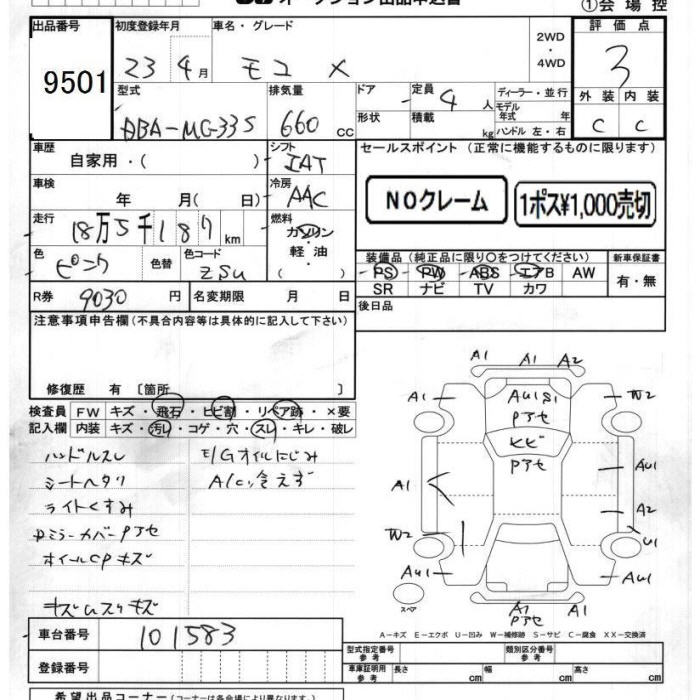 オークション出品申込書
①会場控
出品番号 初度登録年月 車名・グレード 2WD・4WD 評価点
9501 23年4月 モコ X 3
型式 排気量 ドア 定員 ディーラー・並行 外装 内装
ABA-MG33S 660cc 4人 モデル年式 年 C C
形状 積載 kg ハンドル 左・右
車歴 シフト セールスポイント (正常に機能するものに限ります)
自家用・( ) IAT
車検 冷房 NOクレーム 1ポス¥1,000売切
年 月( 日) AAC
走行 燃料
18万5千187km ガソリン・軽油・( )
装備品(純正品に限り○をつけてください) 新車保証書
色 色替 色コード PS PW ABS エアB AW 有・無
ピンク ZSU SR ナビ TV カワ
R券 9030円 名変期限 月 日 後日品
注意事項申告欄(不具合内容等は具体的に記入して下さい)
修復歴 有 [箇所 ]
検査員 FW キズ・飛石・ヒビ割・リペア跡・×要
記入欄 内装 キズ・汚レ・コゲ・穴・スレ・キレ・破レ
ハンドルスレ E/Gオイルにじみ
シートヘタリ A/C冷えず
ライトくすみ
ドミラーカバーPアセ
ホイールCPキズ
キズUスリキズ
A1 A1 A2
A1 AU1 S1 W2
Pアセ
ヒビ
Pアセ AU1
A1 A2
W2 U1
AU1 AU1
スペア A1
Pアセ
A-キズ E-エクボ U-凹み W-補修跡 S-サビ C-腐食 XX-交換済
車台番号 101583
型式指定番号 参考 類別区分番号 参考
登録番号 車庫証明用 参考 長さ cm 幅 cm 高さ cm
希望出品コーナー(コーナーは各会場により異なります。)